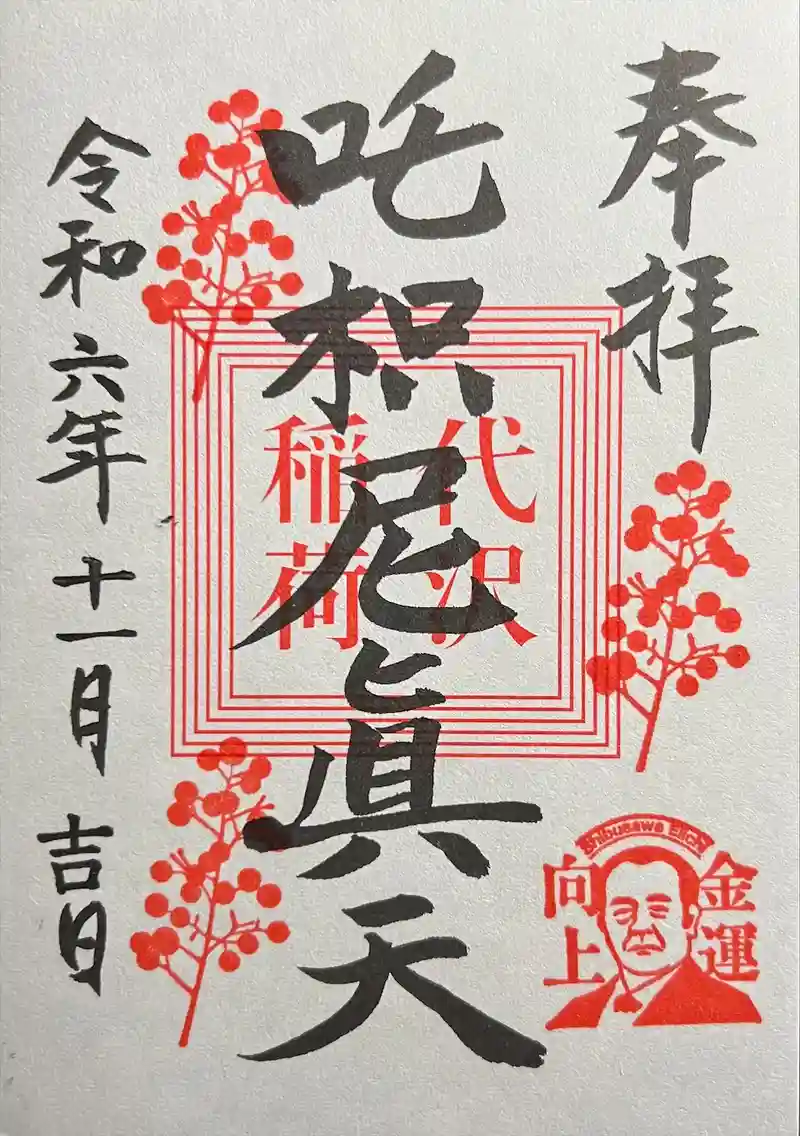 奉拝
吒枳尼眞天
代沢
稲荷
令和六年十一月吉日
Shibusawa Eiichi
金運
向上